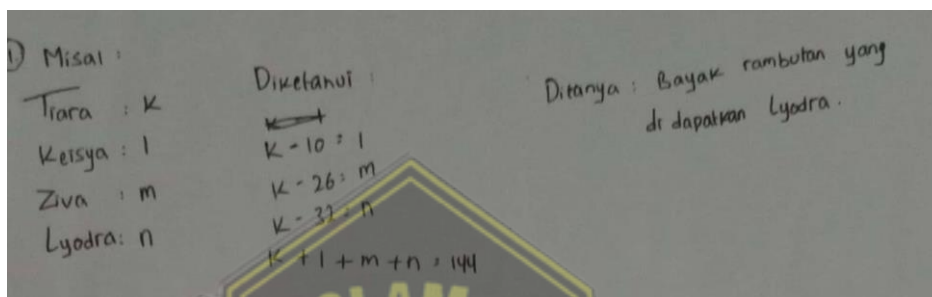 1) Misal :
Tiara : K
Keisya : l
Ziva : m
Lyodra : n
Diketahui :
K - 10 = l
K - 26 = m
K - 32 = n
K + l + m + n = 144
Ditanya : Bayak rambutan yang
di dapatkan Lyodra.